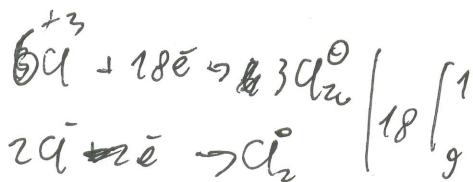 6Cl⁺³ + 18ē → 3Cl₂⁰ | 18 | 1
2Cl⁻ - 2ē → Cl₂⁰ | 9